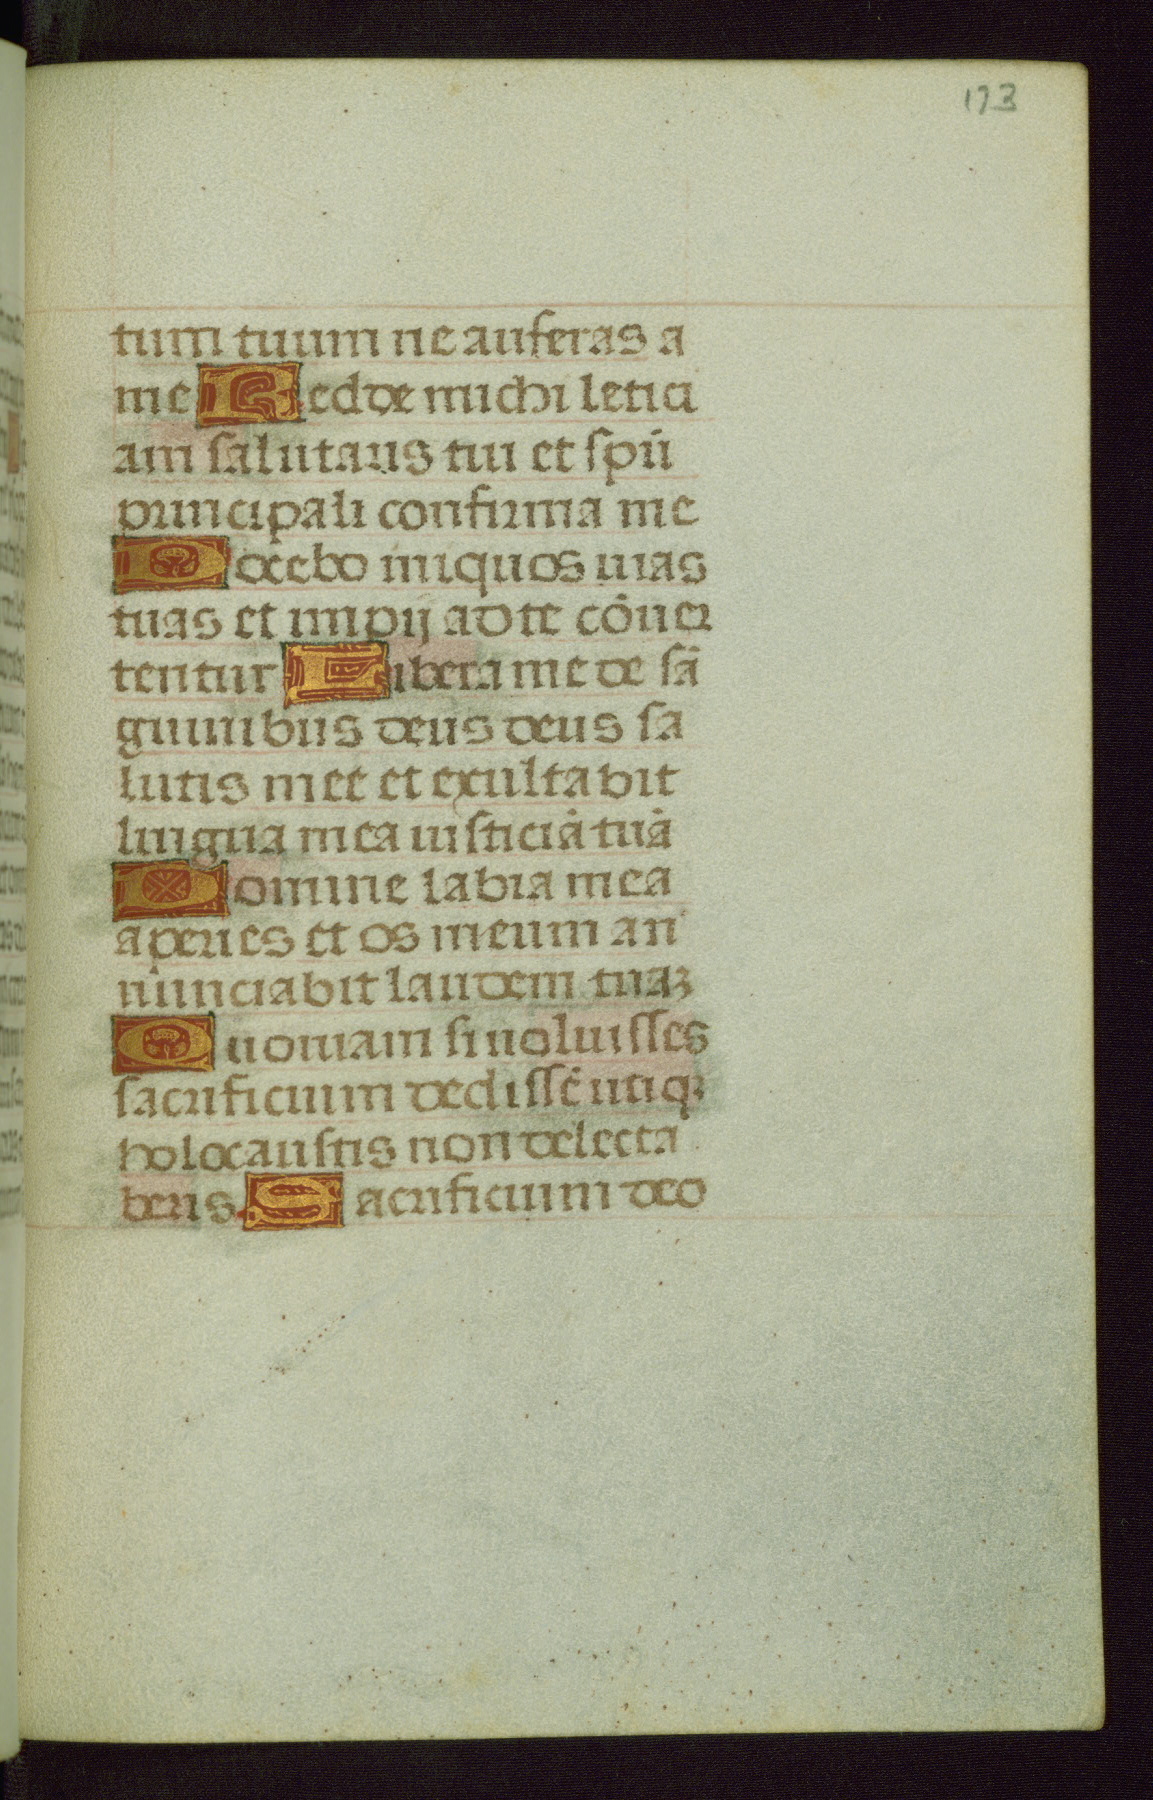 173
tum tuum ne auferas a
me Redde michi letici
am salutaris tui et spū
principali confirma me
Docebo iniquos uias
tuas et impij ad te cōuer
tentur Libera me de sā
guinibus deus deus sa
lutis mee et exultabit
lingua mea iusticiā tuā
Domine labia mea
aperies et os meum an
nunciabit laudem tuaꝫ
Quoniam si uoluisses
sacrificium dedissē utiqꝫ
holocaustis non delecta
beris Sacrificium deo